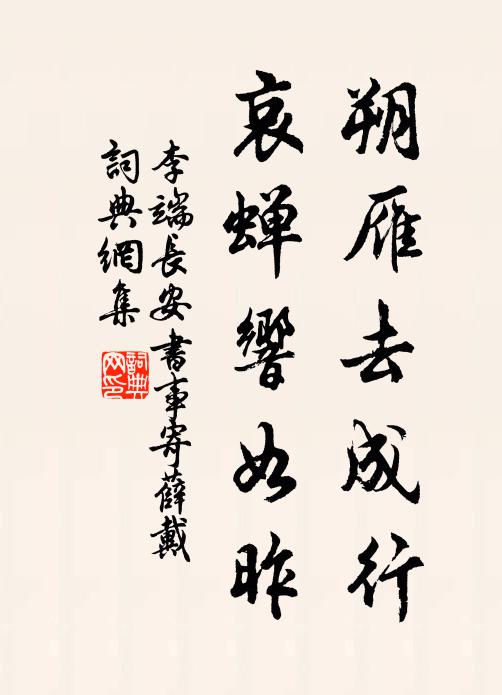 朔雁去成行
哀蝉響如昨
李端長安書事寄薛戴
詞典網集
詞典
网印